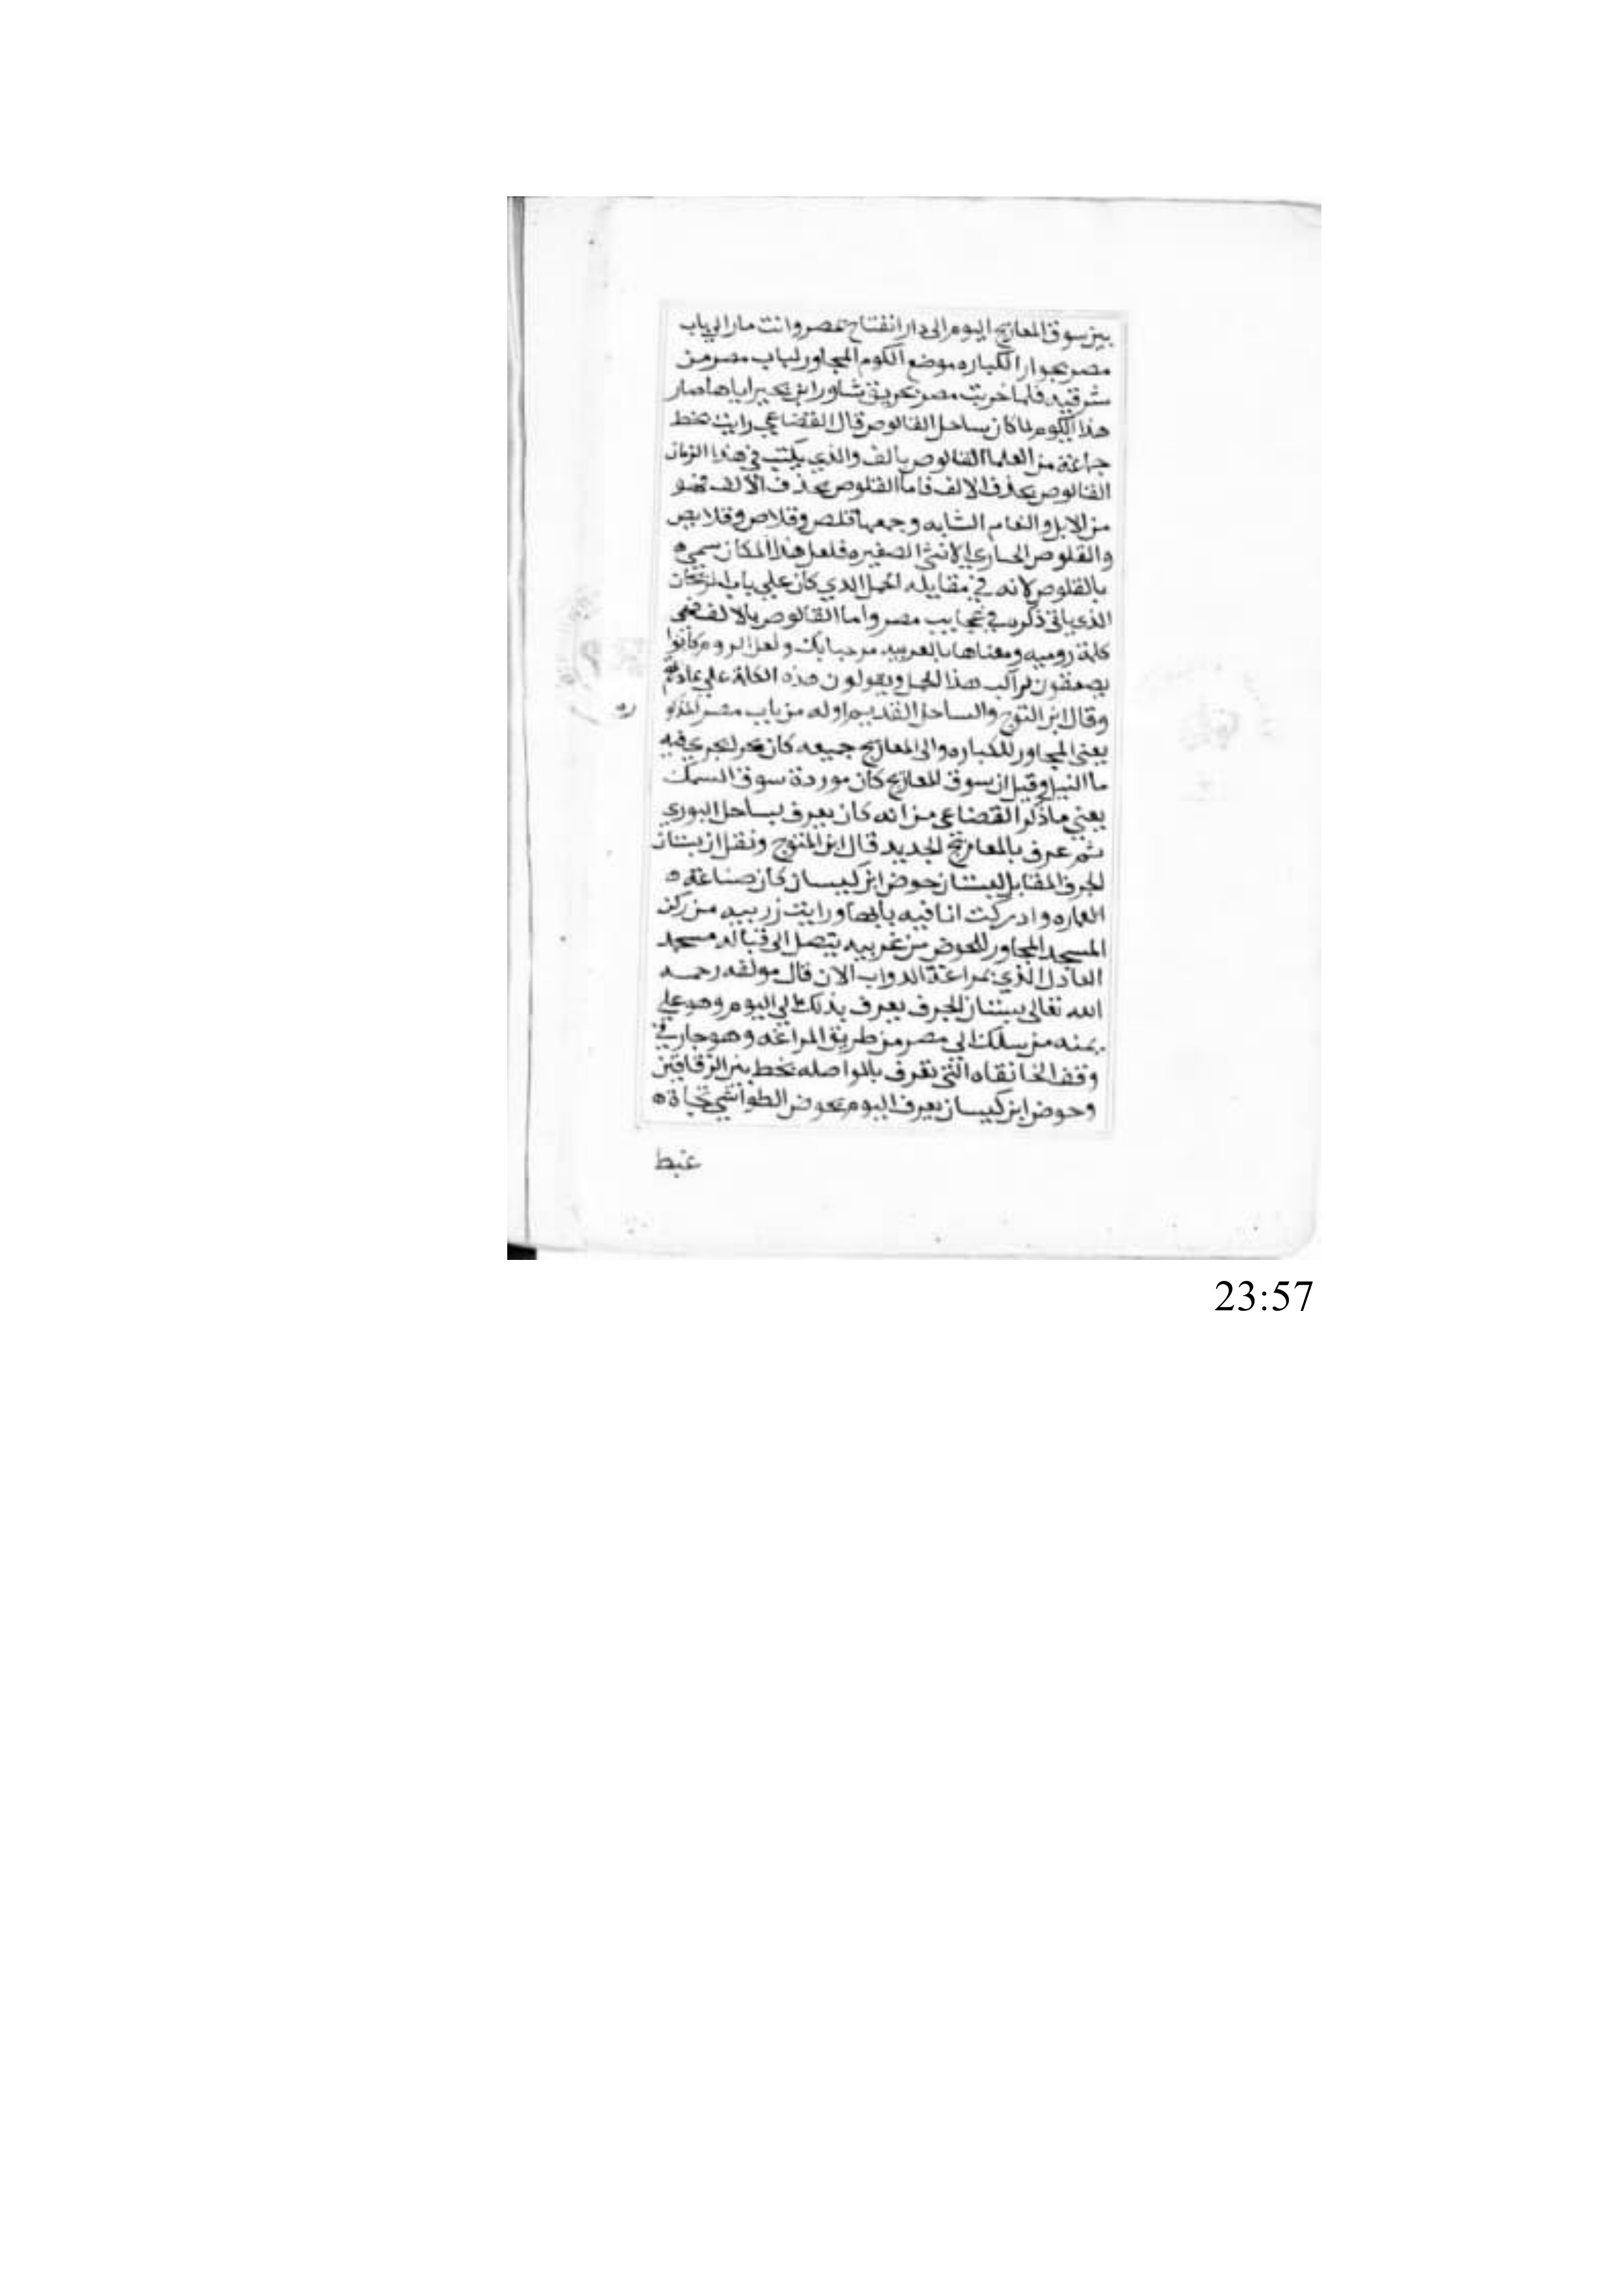 بين سوق المعاريج اليوم الى دار انفتاح بمصر وانت مار الى باب
مصر بجوار الكباره موضع الكوم المجاور لباب مصر من
شرقيه فلما خربت مصر بحريق شاور ابن مجير اياها صار
هذا الكوم لما كان ساحل القالوص قال القضاعي رايت بخط
جماعة من العلما القالوص بالف والذي يكتب في هذا الزمان
القالوص بحذف الالف فاما القلوص بحذف الالف فهو
من الابل والنعام الشابه وجمعها قلص وقلاص وقلايص
والقلوص الحباري الانثى الصغيره فلعل هذا المكان سمي ه
بالقلوص لانه في مقابله الجمل الدي كان علي باب الريحان
الذي ياتي ذكره في عجايب مصر واما القالوص بالالف فهي
كلمة روميه ومعناها بالعربيه مرحبا بك ولعل الروم كانوا
يصفقون لراكب هذا الجمل ويقولون هذه الكلمة علي عادتهم
وقال ابن المتوج والساحل القديم اوله من باب مصر المذكو
ره
يعني المجاور للكباره والى المعاريج جميعه كان بحر تجري فيه
ما النيل وقيل ان سوق المعاريج كان موردة سوق السمك
يعني ما ذكر القضاعي من انه كان يعرف بساحل البوري
ثم عرف بالمعاريج الجديد قال ابن المتوج ونقل ان بستان
الجرف المقابل لبستان حوض ابن كيسان كان صناعة ه
العماره وادركت انا فيه بابها ورايت زريبه من ركن
المسجد المجاور للحوض من غربيه يتصل الى قبالة مسجد
العادل الذي بمراغة الدواب الان قال مولفه رحمه
الله تعالى بستان الجرف يعرف بذلك الي اليوم وهو علي
يمنه من سلك الي مصر من طريق المراغه وهو جار في
وقف الخانقاه التي تعرف بالمواصله بخط بين الزقاقين
وحوض ابن كيسان يعرف اليوم بحوض الطواشي تجاة ه
غيط
23:57